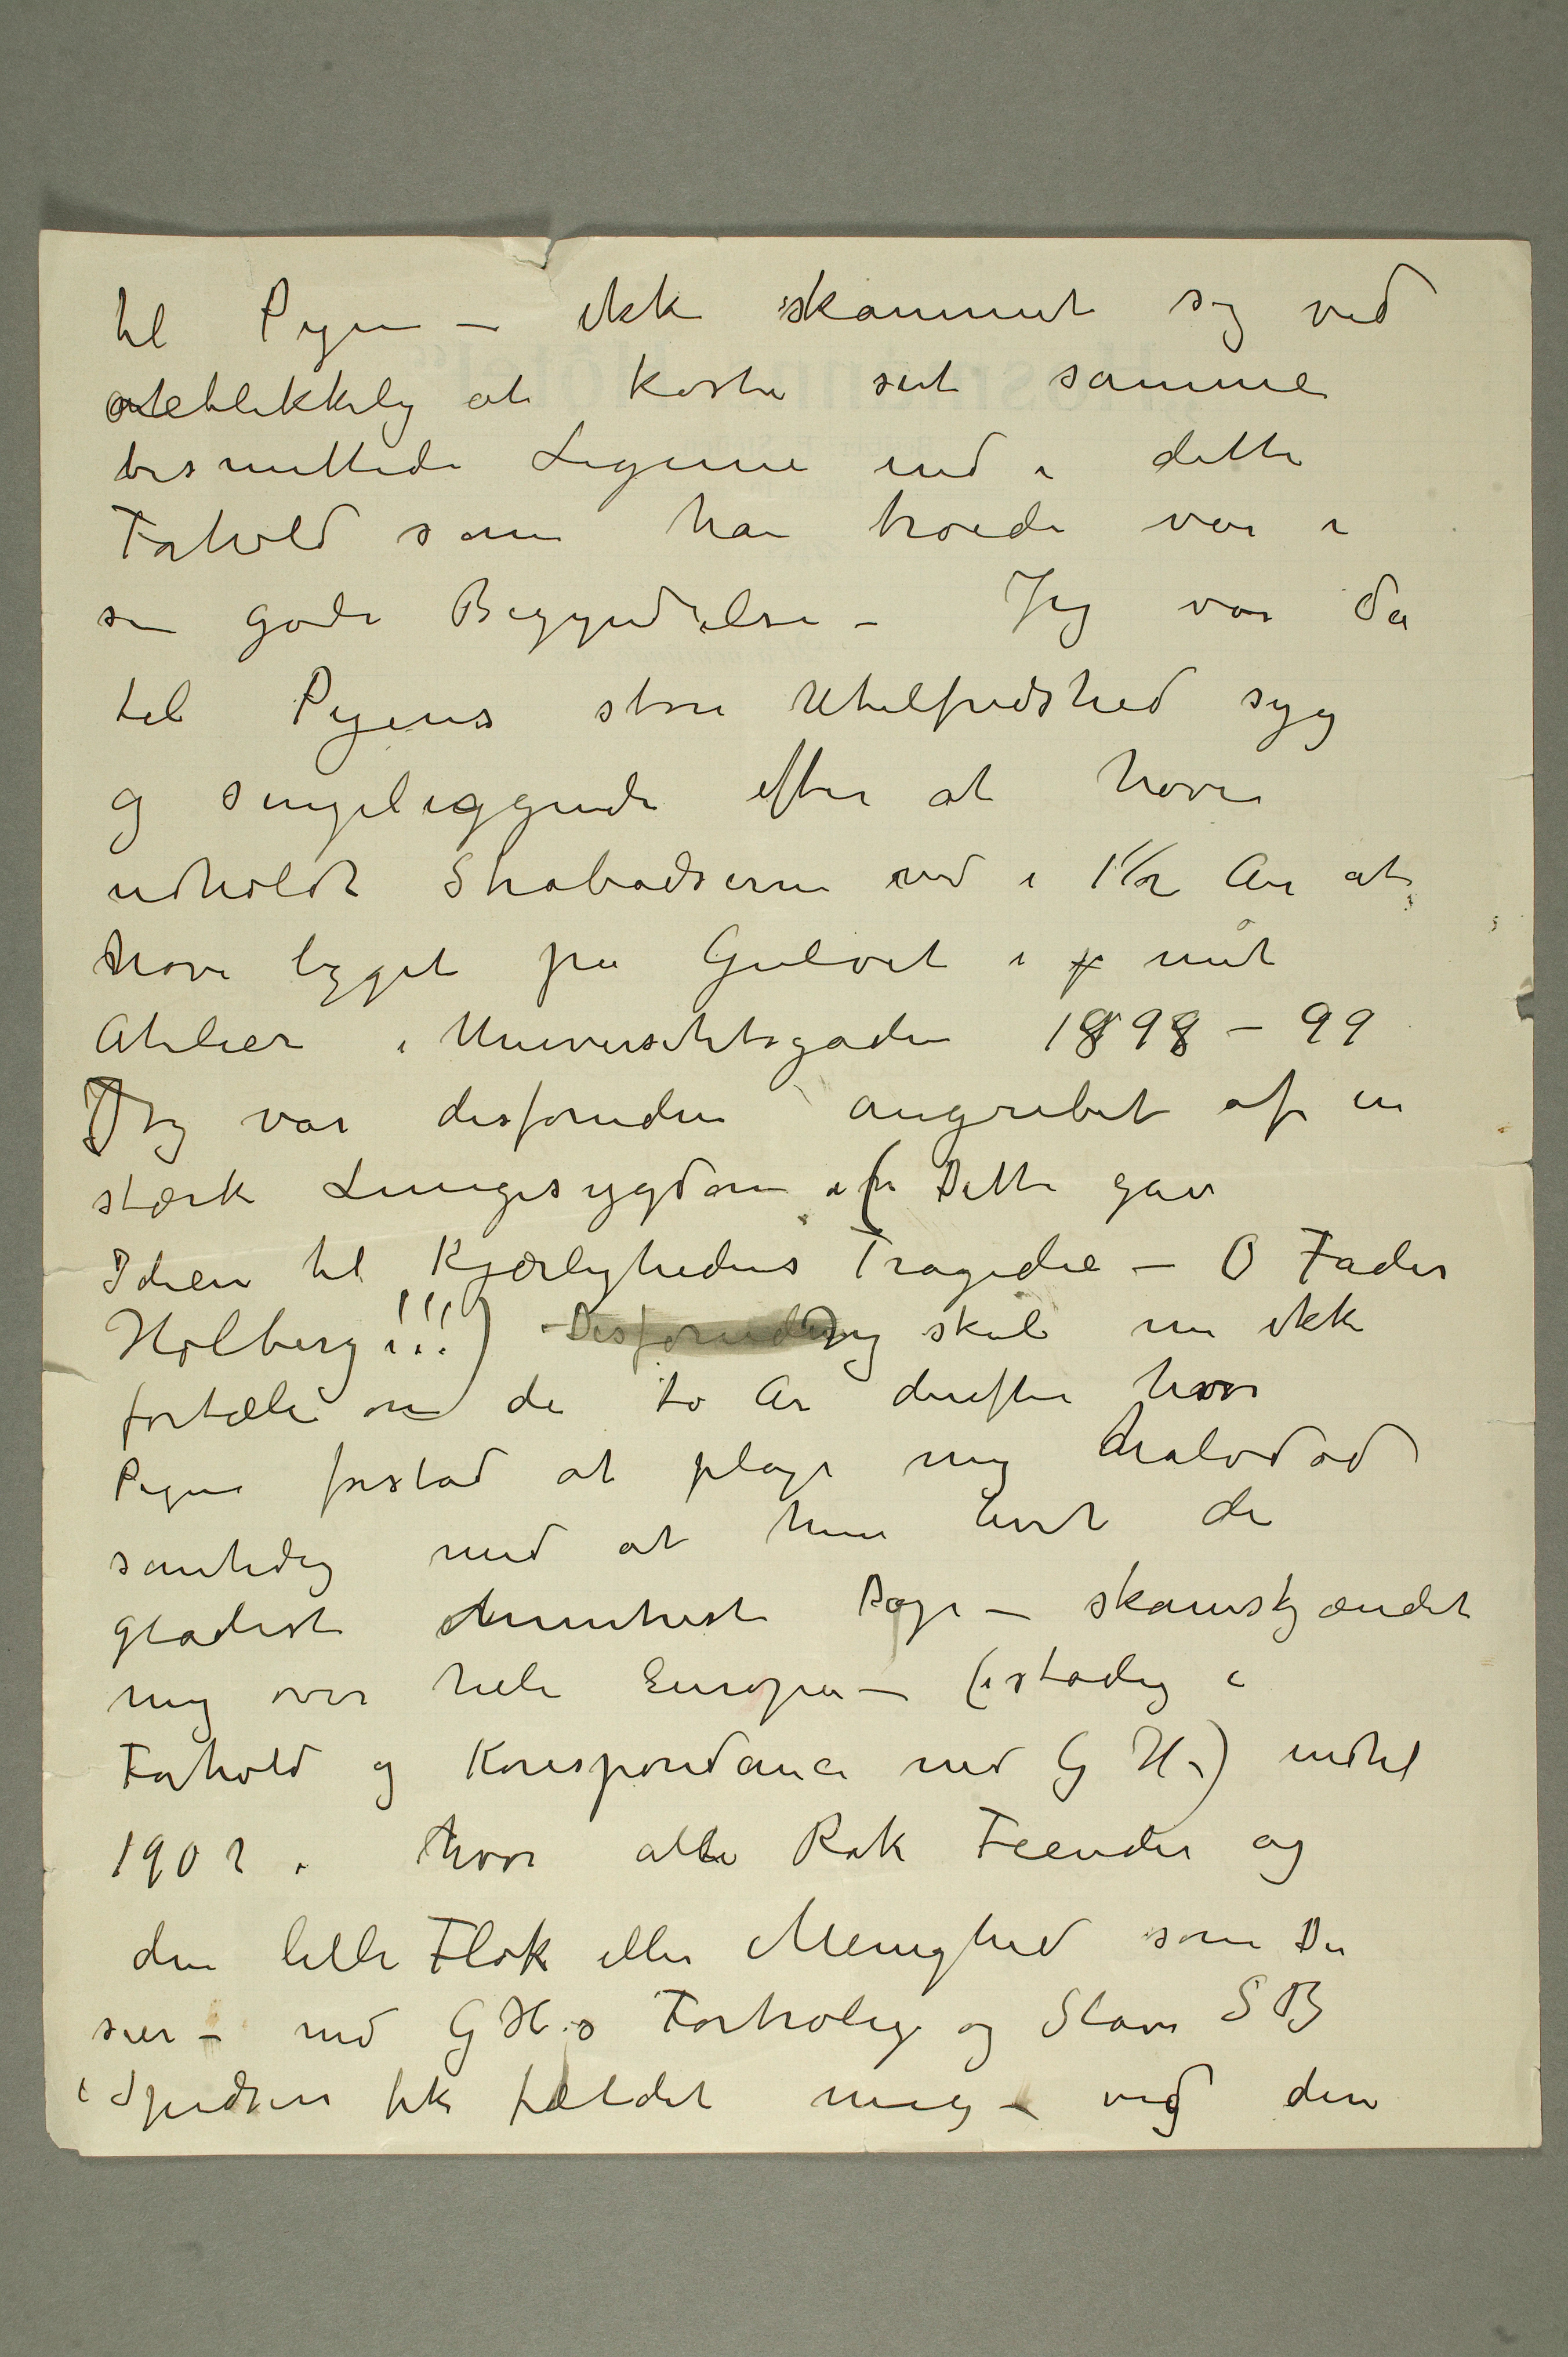 til Pigen – ikke skammet sig ved
øieblikkelig at kaste sit samme
besmittede Legeme ind i dette
Forhold som han troede var i
sin gode Begyndelse – Jeg var da
til Pigens store Utilfredshed syg
og sengeliggende efter at have
udholdt Strabadserne ved i 1½ Aar at
have ligget på Gulvet i mit
Atelier i Universitetsgaden 1898 – 99
Jeg var desforuden angrebet af en
stærk Lungesygdom (Dette gav
Ideen til Kjærlighedens Tragedie – O Fader
Holberg !!!) Jeg skal nu ikke
fortælle om de to Aar derefter hvor
Pigen forstod at plage mig halvdød
samtidig med at hun levet de
gladeste muntreste Dage – skamskjændet
mig over hele Europa – (i stadig
Forhold og Korespondance med G H –) indtil
1902 . hvor alle Rak Fiender og
den lille Flok eller Menighed som De
sier – med G H.s Fortrolige og Slave S B
i Spidsen fik fældet mig – ved den